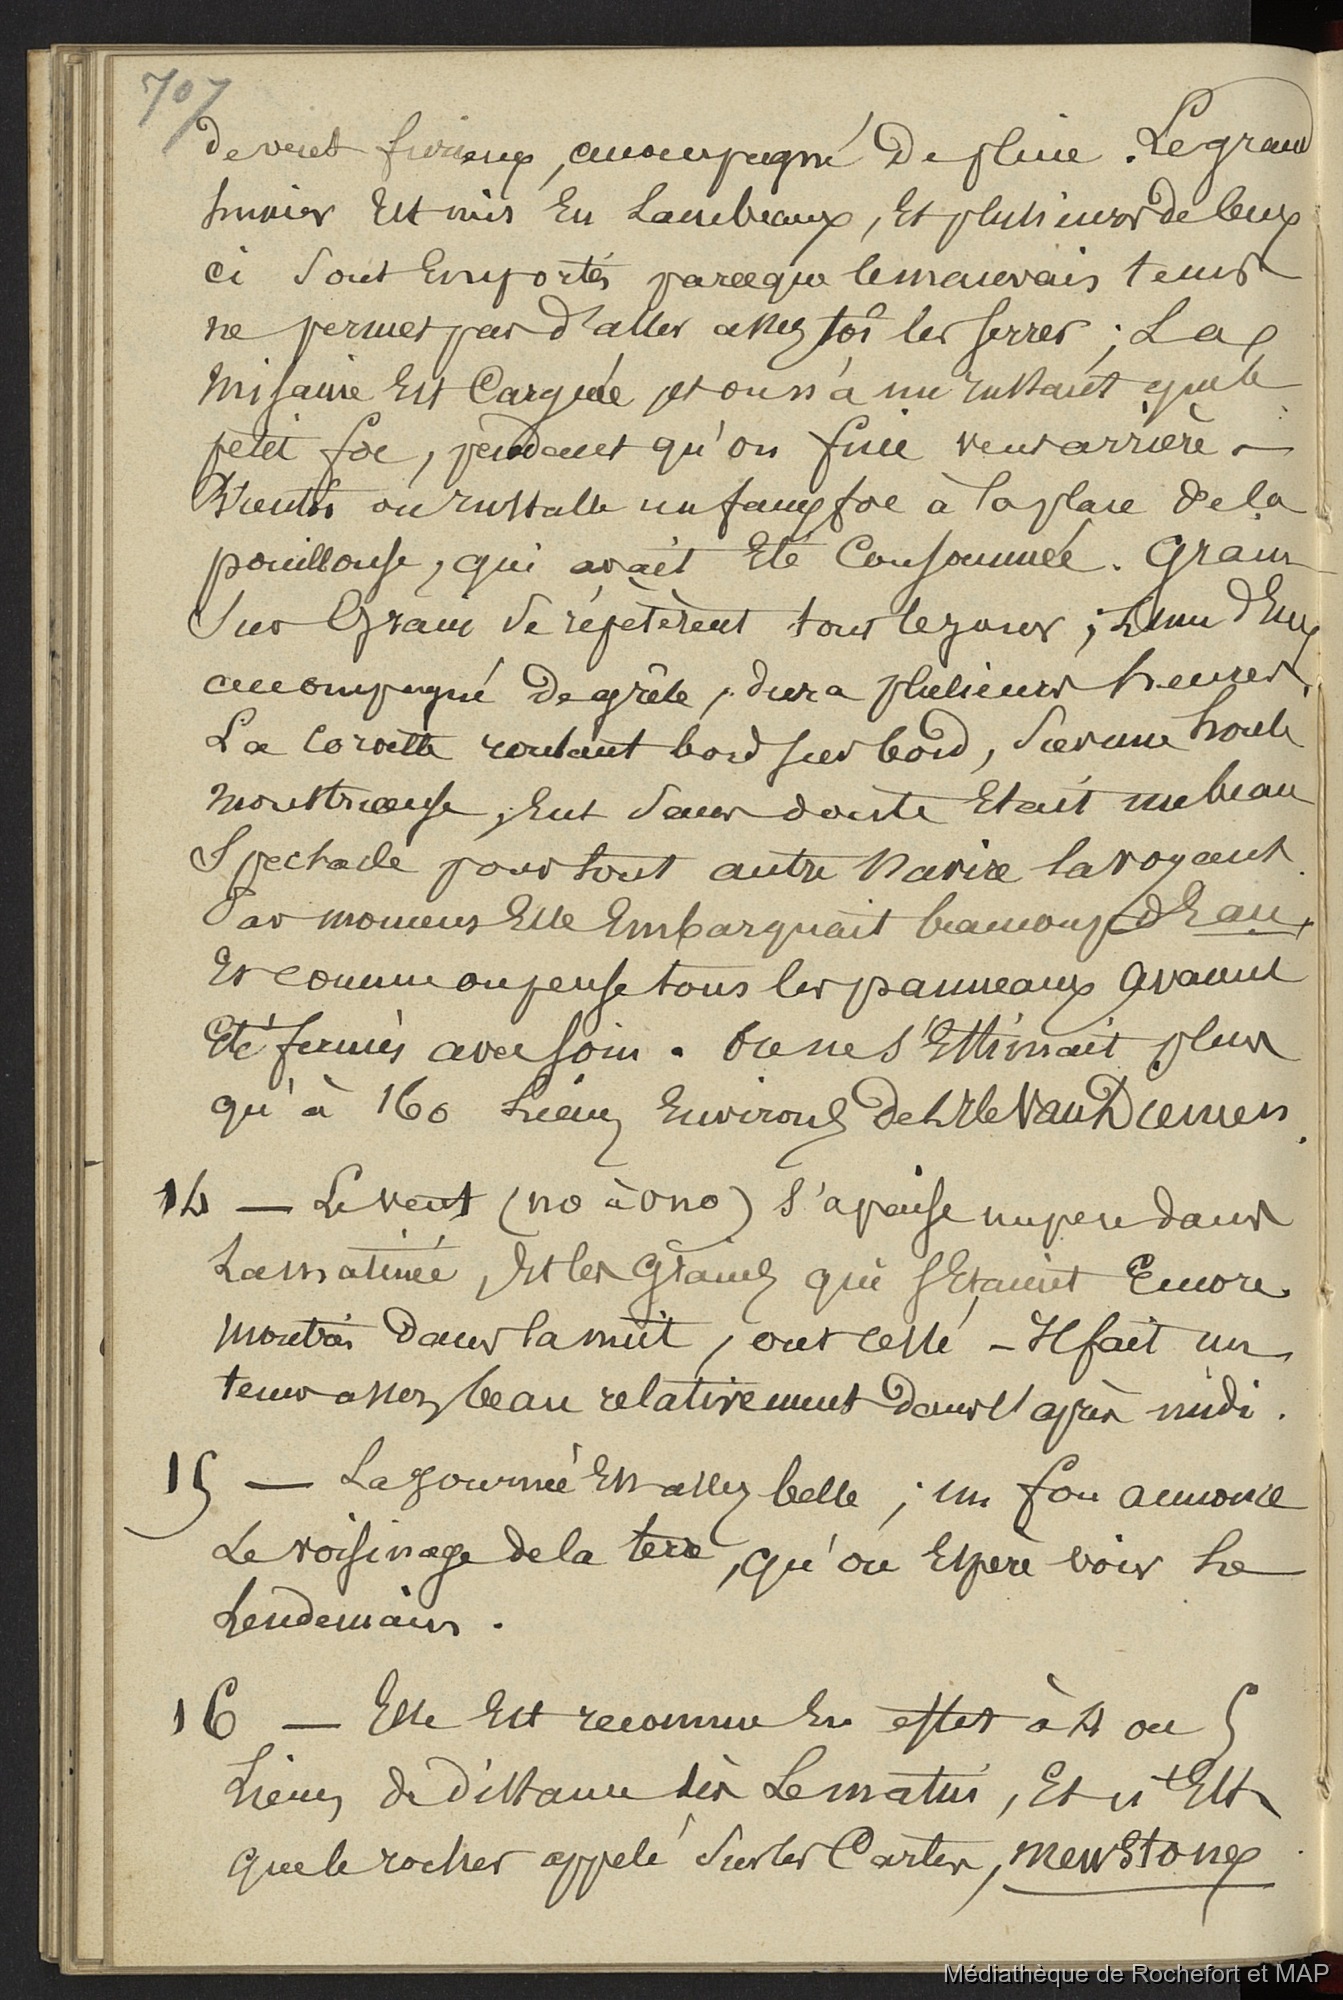 707
de vent furieux, accompagné de pluie. Le grand
hunier Est mis En Lambeaux, Et plusieurs de ceux
ci sont Emportés parceque le mauvais tems
ne permet pas d'aller assez tôt les serrer ; La
Misaine Est Carguée, et on n'a un instant que le
petit foc, pendant qu'on fuie vent arrière –
Bientôt on installe un faux foc à la place de la
pouillouse, qui avait Eté Consommée. Grain
Sur Grain se répètèrent tout le jour ; L'un d'Eux
accompagné de grêle, dura plusieurs heures.
La Corvette roulant bord sur bord, sur une houle
monstrueuse, Eut sans doute Etait un beau
Spectacle pour tout autre Navire la voyant.
Par momens Elle Embarquait beaucoup d'Eau,
Et comme on pense tous les panneaux avaient
Eté fermés avec soin. On ne s'Estimait plus
qu'à 160 Lieux Environs de L'Ile Van Diemen.
14 — Le vent (no à ono) s'apaise un peu dans
La matinée, Et les Grains qui s'Etaient Encore
montrés dans la nuit, ont cessé – Il fait un
tems assez beau relativement dans l'après midi.
15 — La journée Est assez belle ; un fou annonce
Le voisinage de la terre, qu'on Espère voir Le
Lendemain.
16 — Elle Est reconnue En effet à 4 ou 5
Lieux de distance dès Le matin, Et c'Est
que le rocher appelé sur les Cartes, Mewstone
Médiathèque de Rochefort et MAP